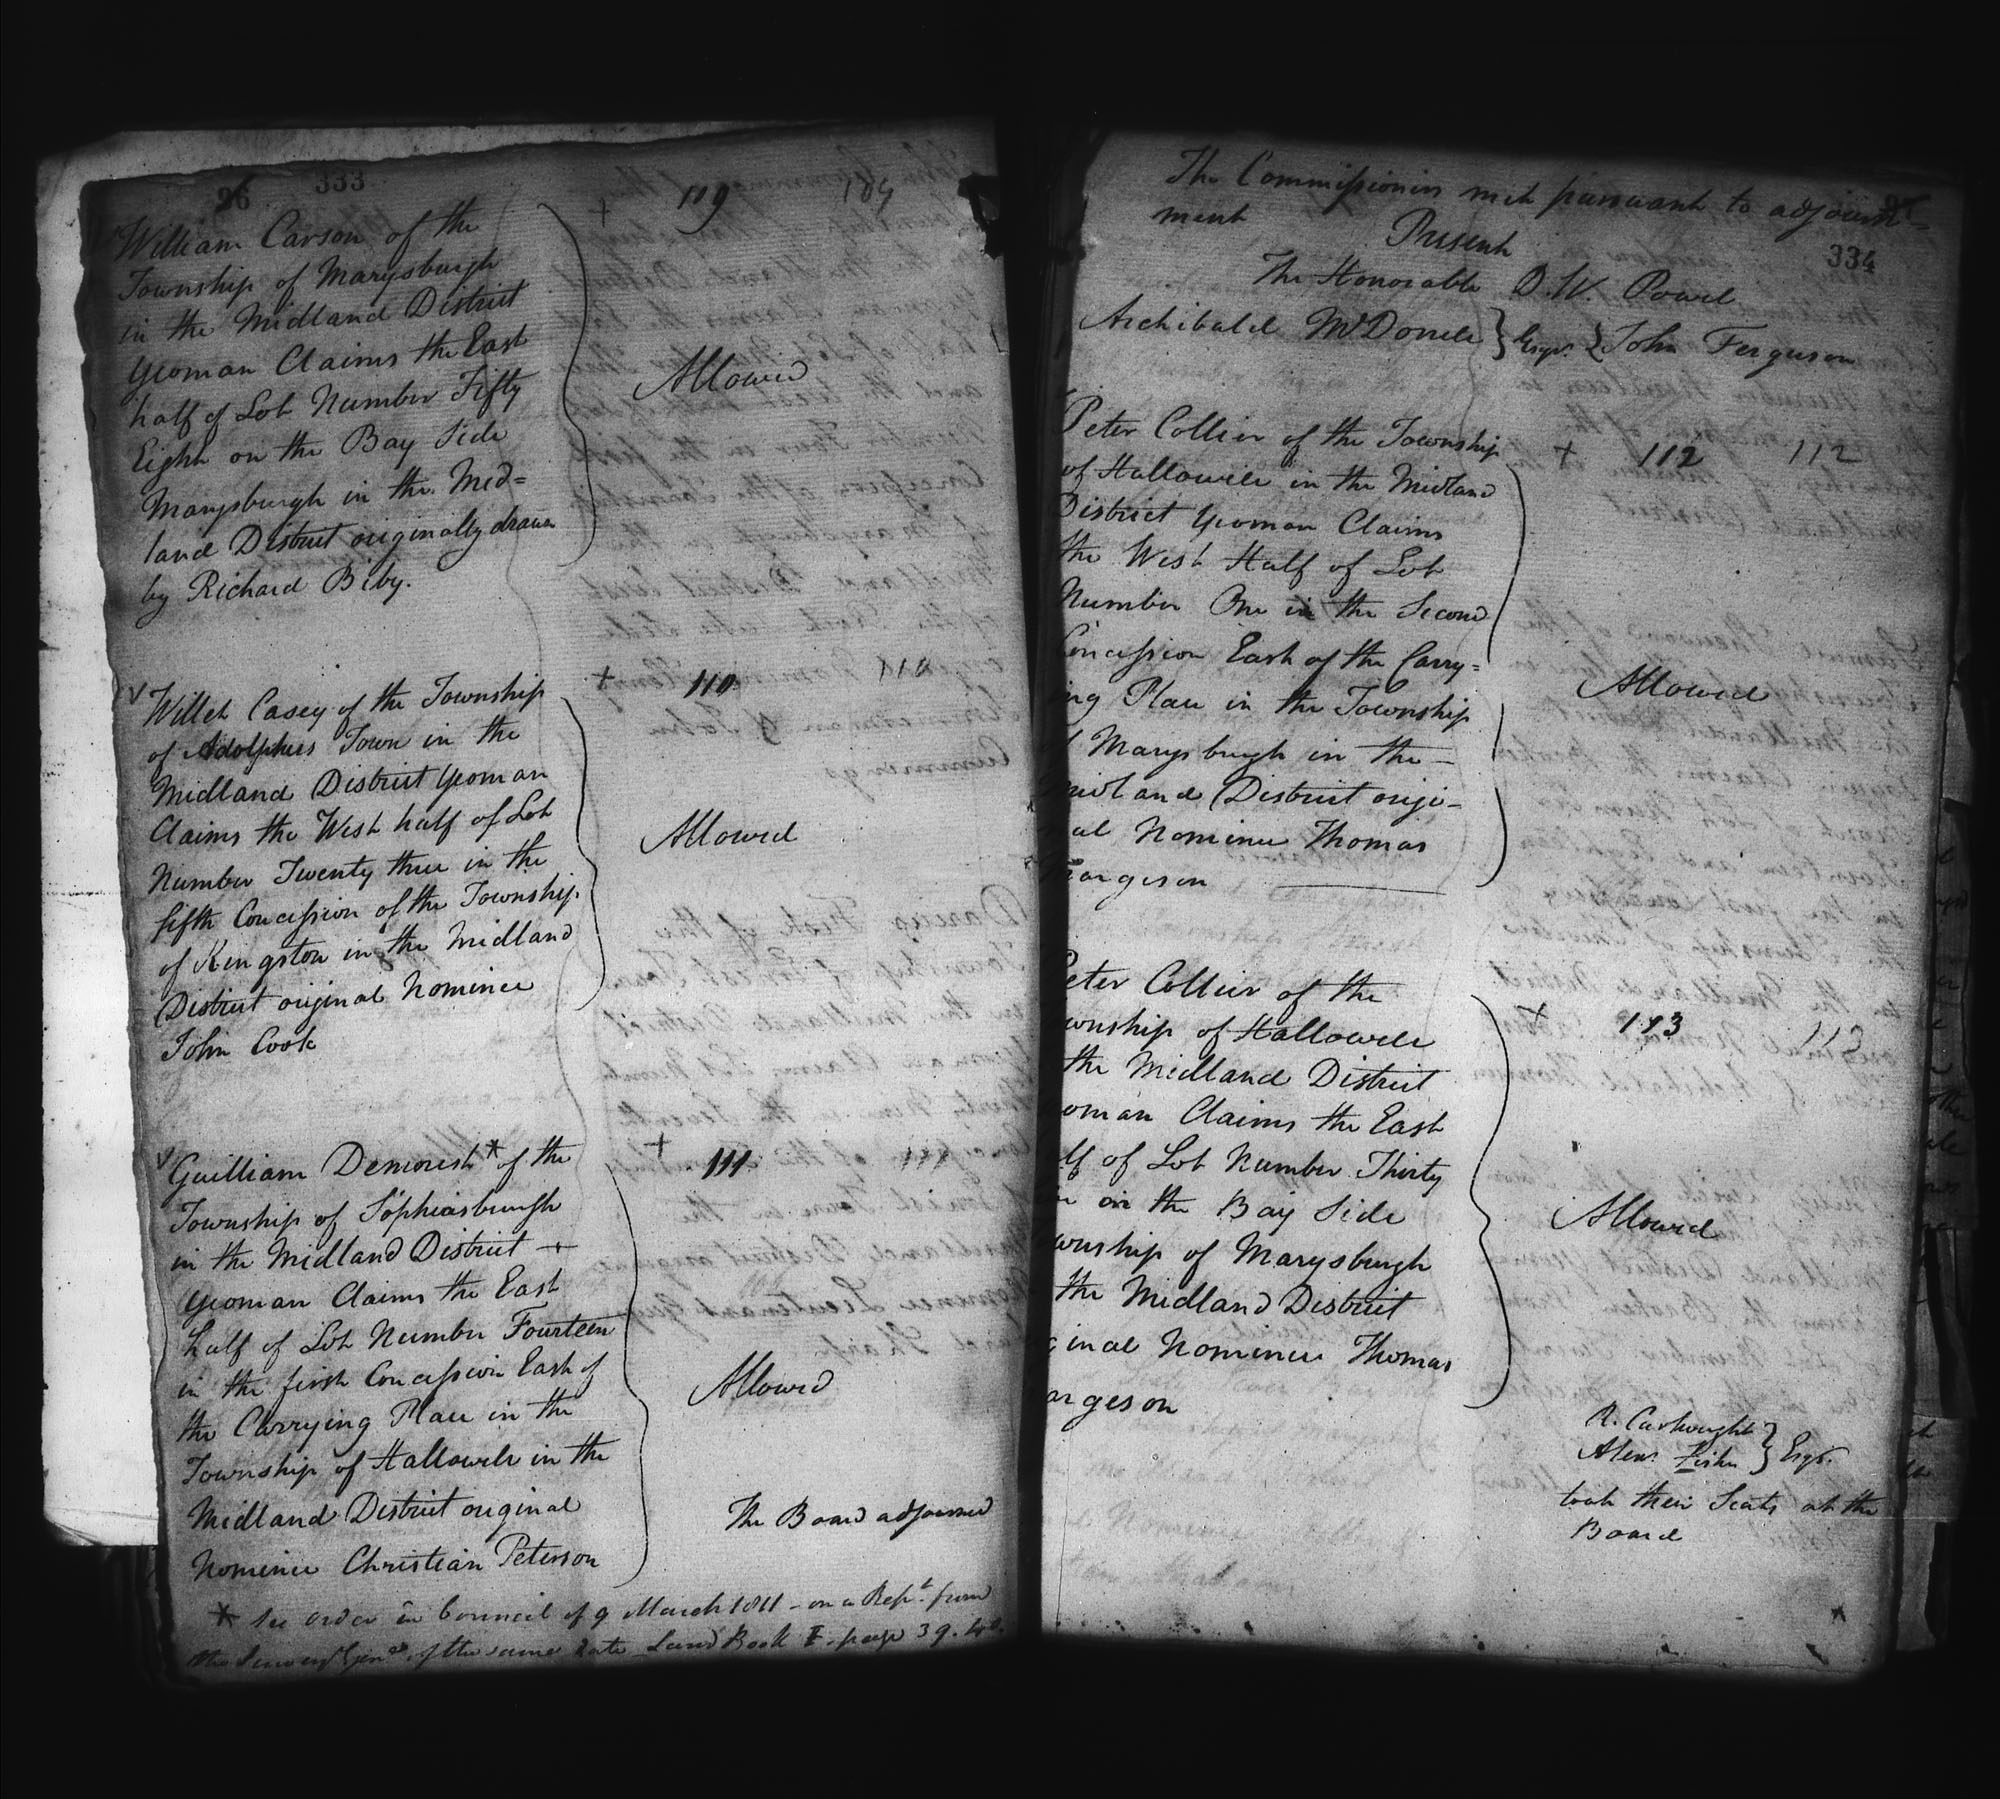 26 333
+ 119 109
William Carson of the
Township of Marysburgh
in the Midland District
Yeoman Claims the East
half of Lot Number Fifty
Eight on the Bay Side
Marysburgh in the Mid=
land District originally drawn
by Richard Beby.
Allowed
+ 110 110
V Willet Casey of the Township
of Adolphus Town in the
Midland District Yeoman
Claims the West half of Lot
Number Twenty three in the
fifth Concession of the Township
of Kingston in the Midland
District original Nominee
John Cook
Allowed
+ 111 111
V Guilliam Demorest * of the
Township of Sophiasburgh
in the Midland District
Yeoman Claims the East
half of Lot Number Fourteen
in the first Concession East of
the Carrying Place in the
Township of Hallowell in the
Midland District original
Nominee Christian Peterson
Allowed
The Board adjourned
* See order in Council of 9 March 1811 - on a Rept. from
the Survey. Genl. of the same date Land Book page 39.
The Commissioners met pursuant to adjourn=
ment
334
Present
The Honorable D. W. Powell
Archibald McDonell } Esqrs. { John Ferguson
+ 112 112
Peter Collier of the Township
of Hallowell in the Midland
District Yeoman Claims
the West Half of Lot
Number One in the Second
Concession East of the Carry=
ing Place in the Township
Marysburgh in the
Midland District origi-
nal Nominee Thomas
Fargeson
Allowed
+ 113 113
Peter Collier of the
ownship of Hallowell
the Midland District
oman Claims the East
lf of Lot Number Thirty
on the Bay Side
wnship of Marysburgh
the Midland District
inal Nominee Thomas
argeson
Allowed
R. Cartwright
Alexr. Fisher } Esqrs.
took their Seats at the
Board